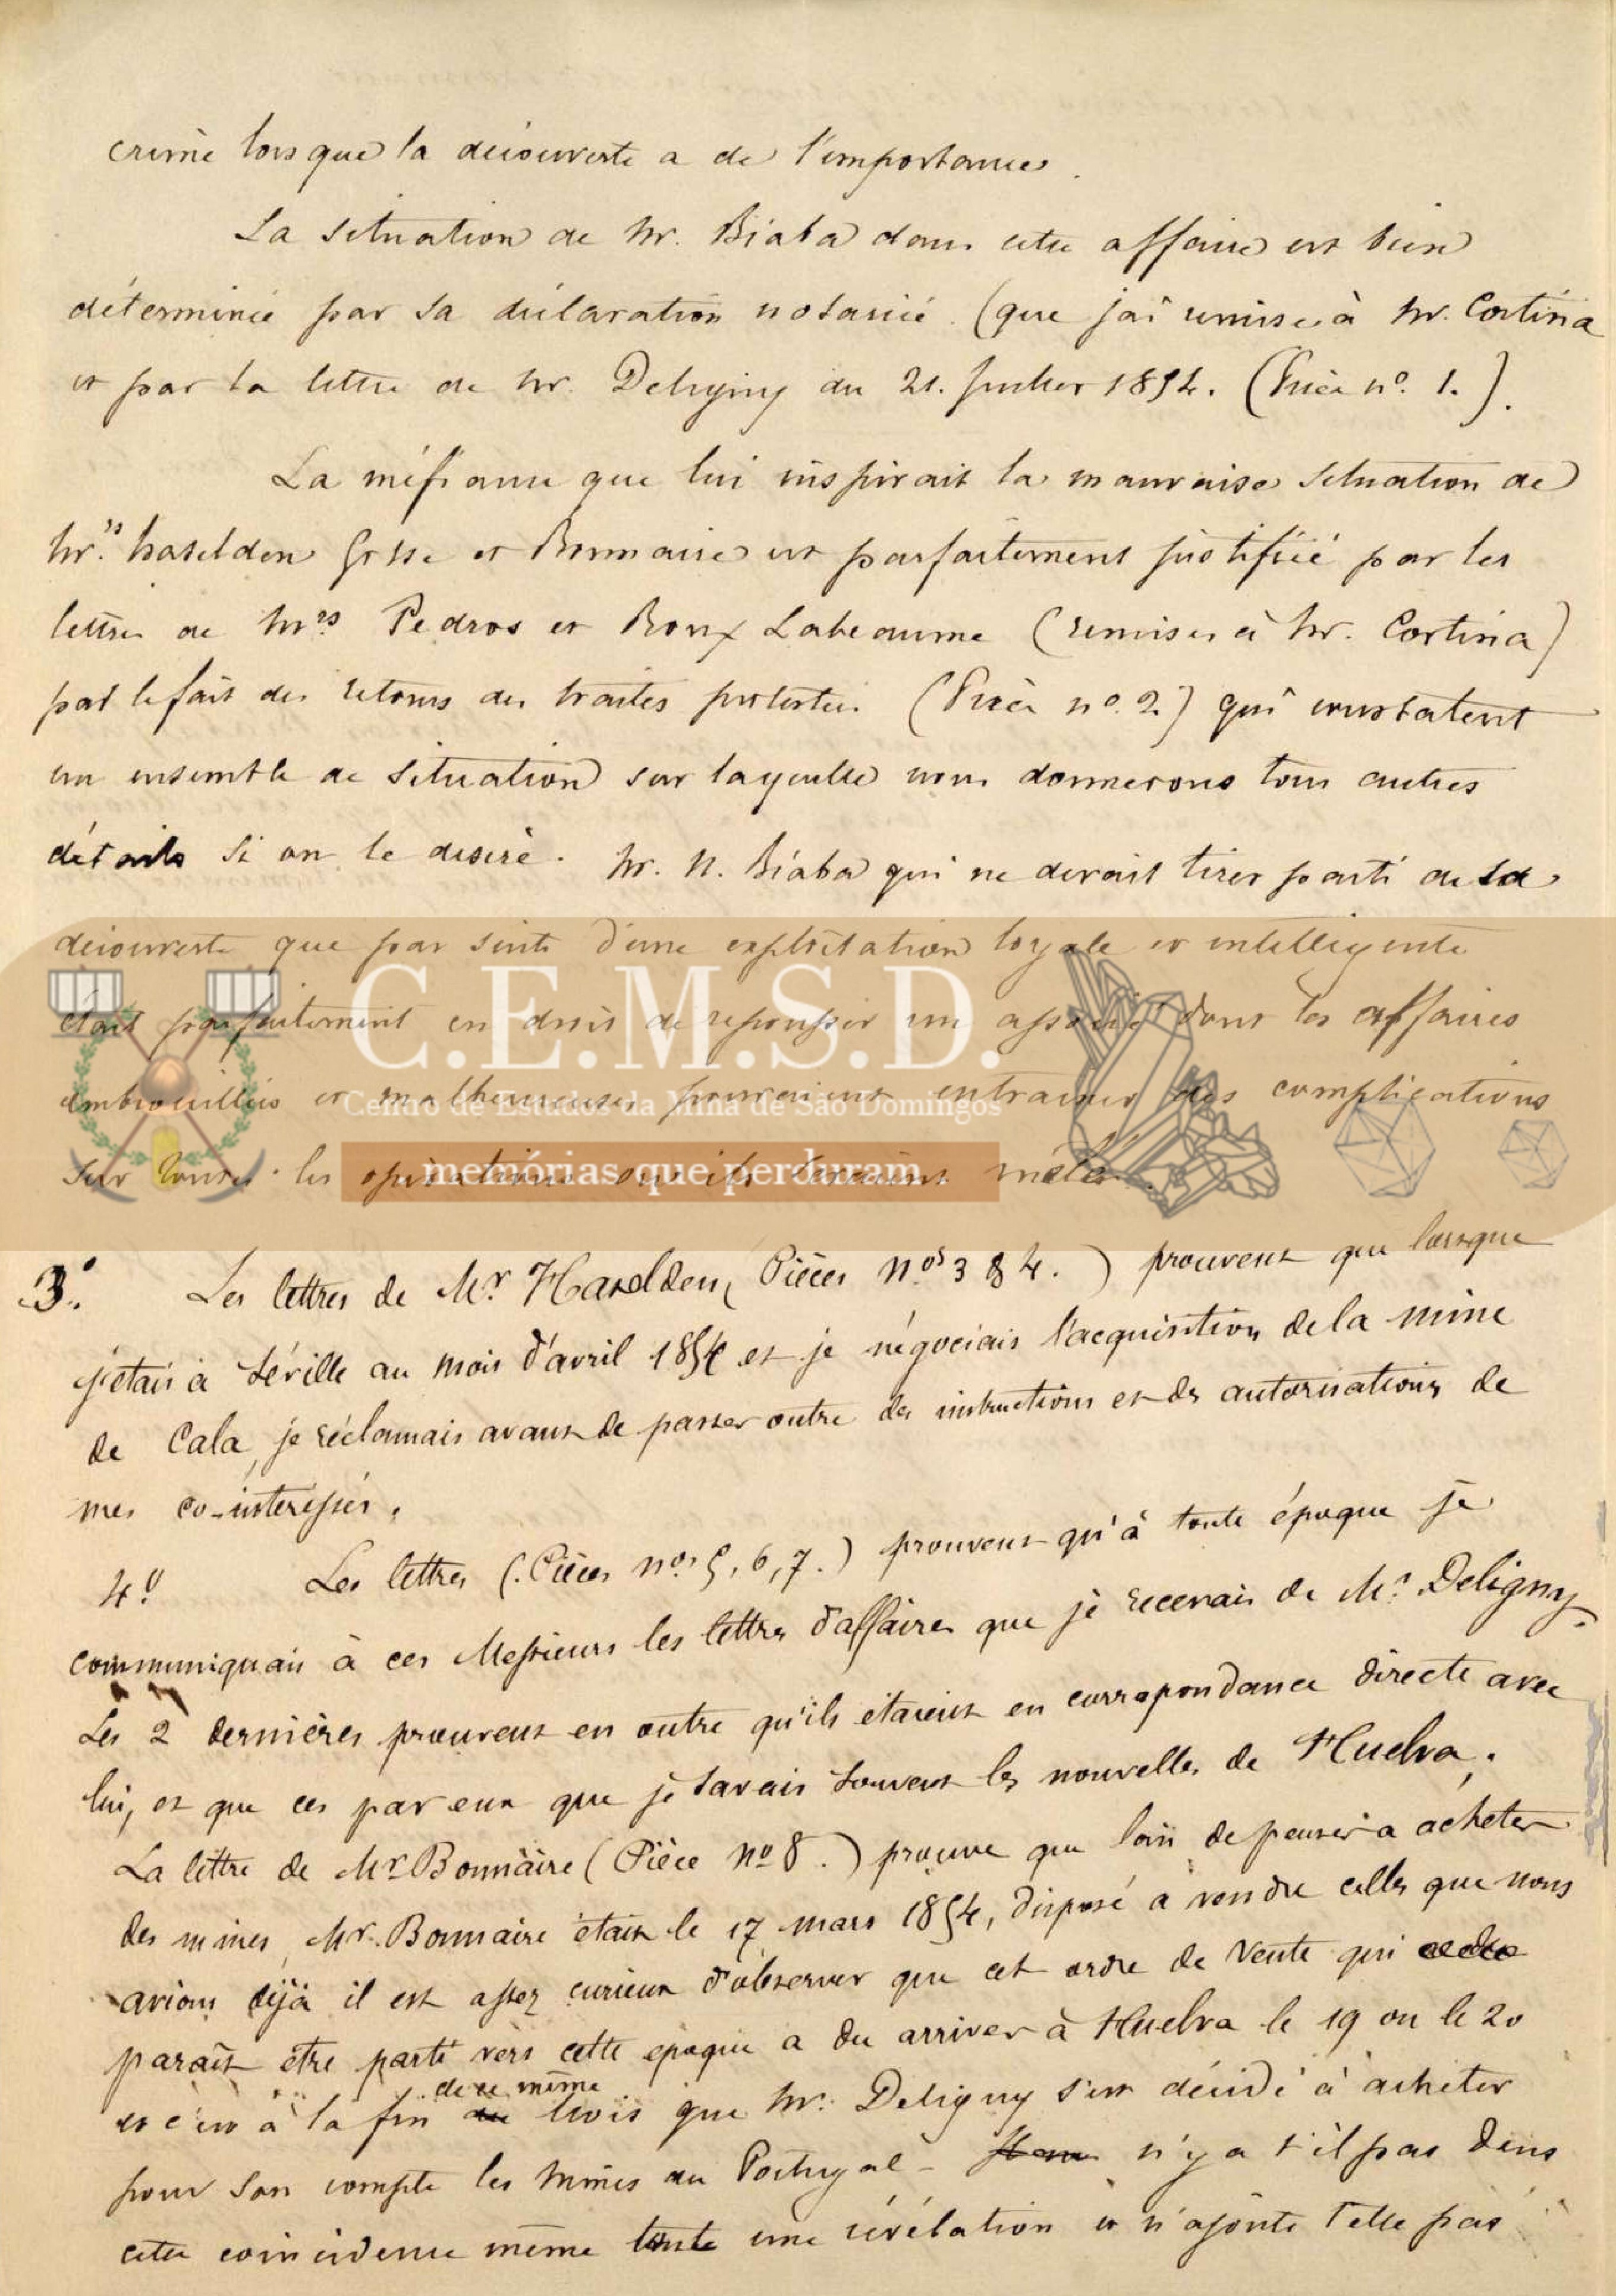 crime lorsque la découverte a de l'importance.
La situation de Mr. Biaba dans cette affaire est bien
déterminée par sa déclaration notariée (que j'ai remise à Mr. Cortina
et par la lettre de Mr. Deligny du 21. Juillet 1854. (Pièce no. 1.).
La méfiance que lui inspirait la mauvaise situation de
Mrs. Haselden Gosse et Bonnaire est parfaitement justifiée par les
lettres de Mrs Pedros et Roux Labeaume (remises à Mr. Cortina)
par le fait des retours des traites protestées (Pièce no. 2) qui constatent
un ensemble de situation sur laquelle nous donnerons tous autres
détails si on le désire. Mr. N. Biaba qui ne devait tirer parti de sa
découverte que par suite d'une exploitation loyale et intelligente
C.E.M.S.D.
était parfaitement en droit de repousser un associé dont les affaires
embrouillées et malheureuses pourraient entrainer des complications
Centro de Estudos da Mina de São Domingos
sur toutes les opérations où ils seraient mêlés.
memórias que perduram
3.° Les lettres de Mr Haselden (Pièces nos 3 & 4.) prouvent que lorsque
j'étais à Séville au mois d'avril 1854 et je négociais l'acquisition de la mine
de Cala, je réclamais avant de passer outre des instructions et des autorisations de
mes co-intéressés.
4.° Les lettres (Pièces nos 5, 6, 7.) prouvent qu'à toute époque je
communiquais à ces Messieurs les lettres d'affaires que je recevais de Mr. Deligny.
Les 2 dernières prouvent en outre qu'ils étaient en correspondance directe avec
lui, et que ces par eux que je savais souvent les nouvelles de Huelva.
La lettre de Mr Bonnaire (Pièce no 8.) prouve que loin de penser a acheter
des mines, Mr. Bonnaire était le 17 mars 1854, disposé a vendre celles que nous
avions déjà il est assez curieux d'observer que cet ordre de vente qui
parait être parti vers cette époque a du arriver à Huelva le 19 ou le 20
et c'est à la fin de ce même mois que Mr. Deligny s'est décidé à acheter
pour son compte les mines du Portugal – n'y a t'il pas dans
cette coincidence même toute une révélation et n'ajoute t'elle pas